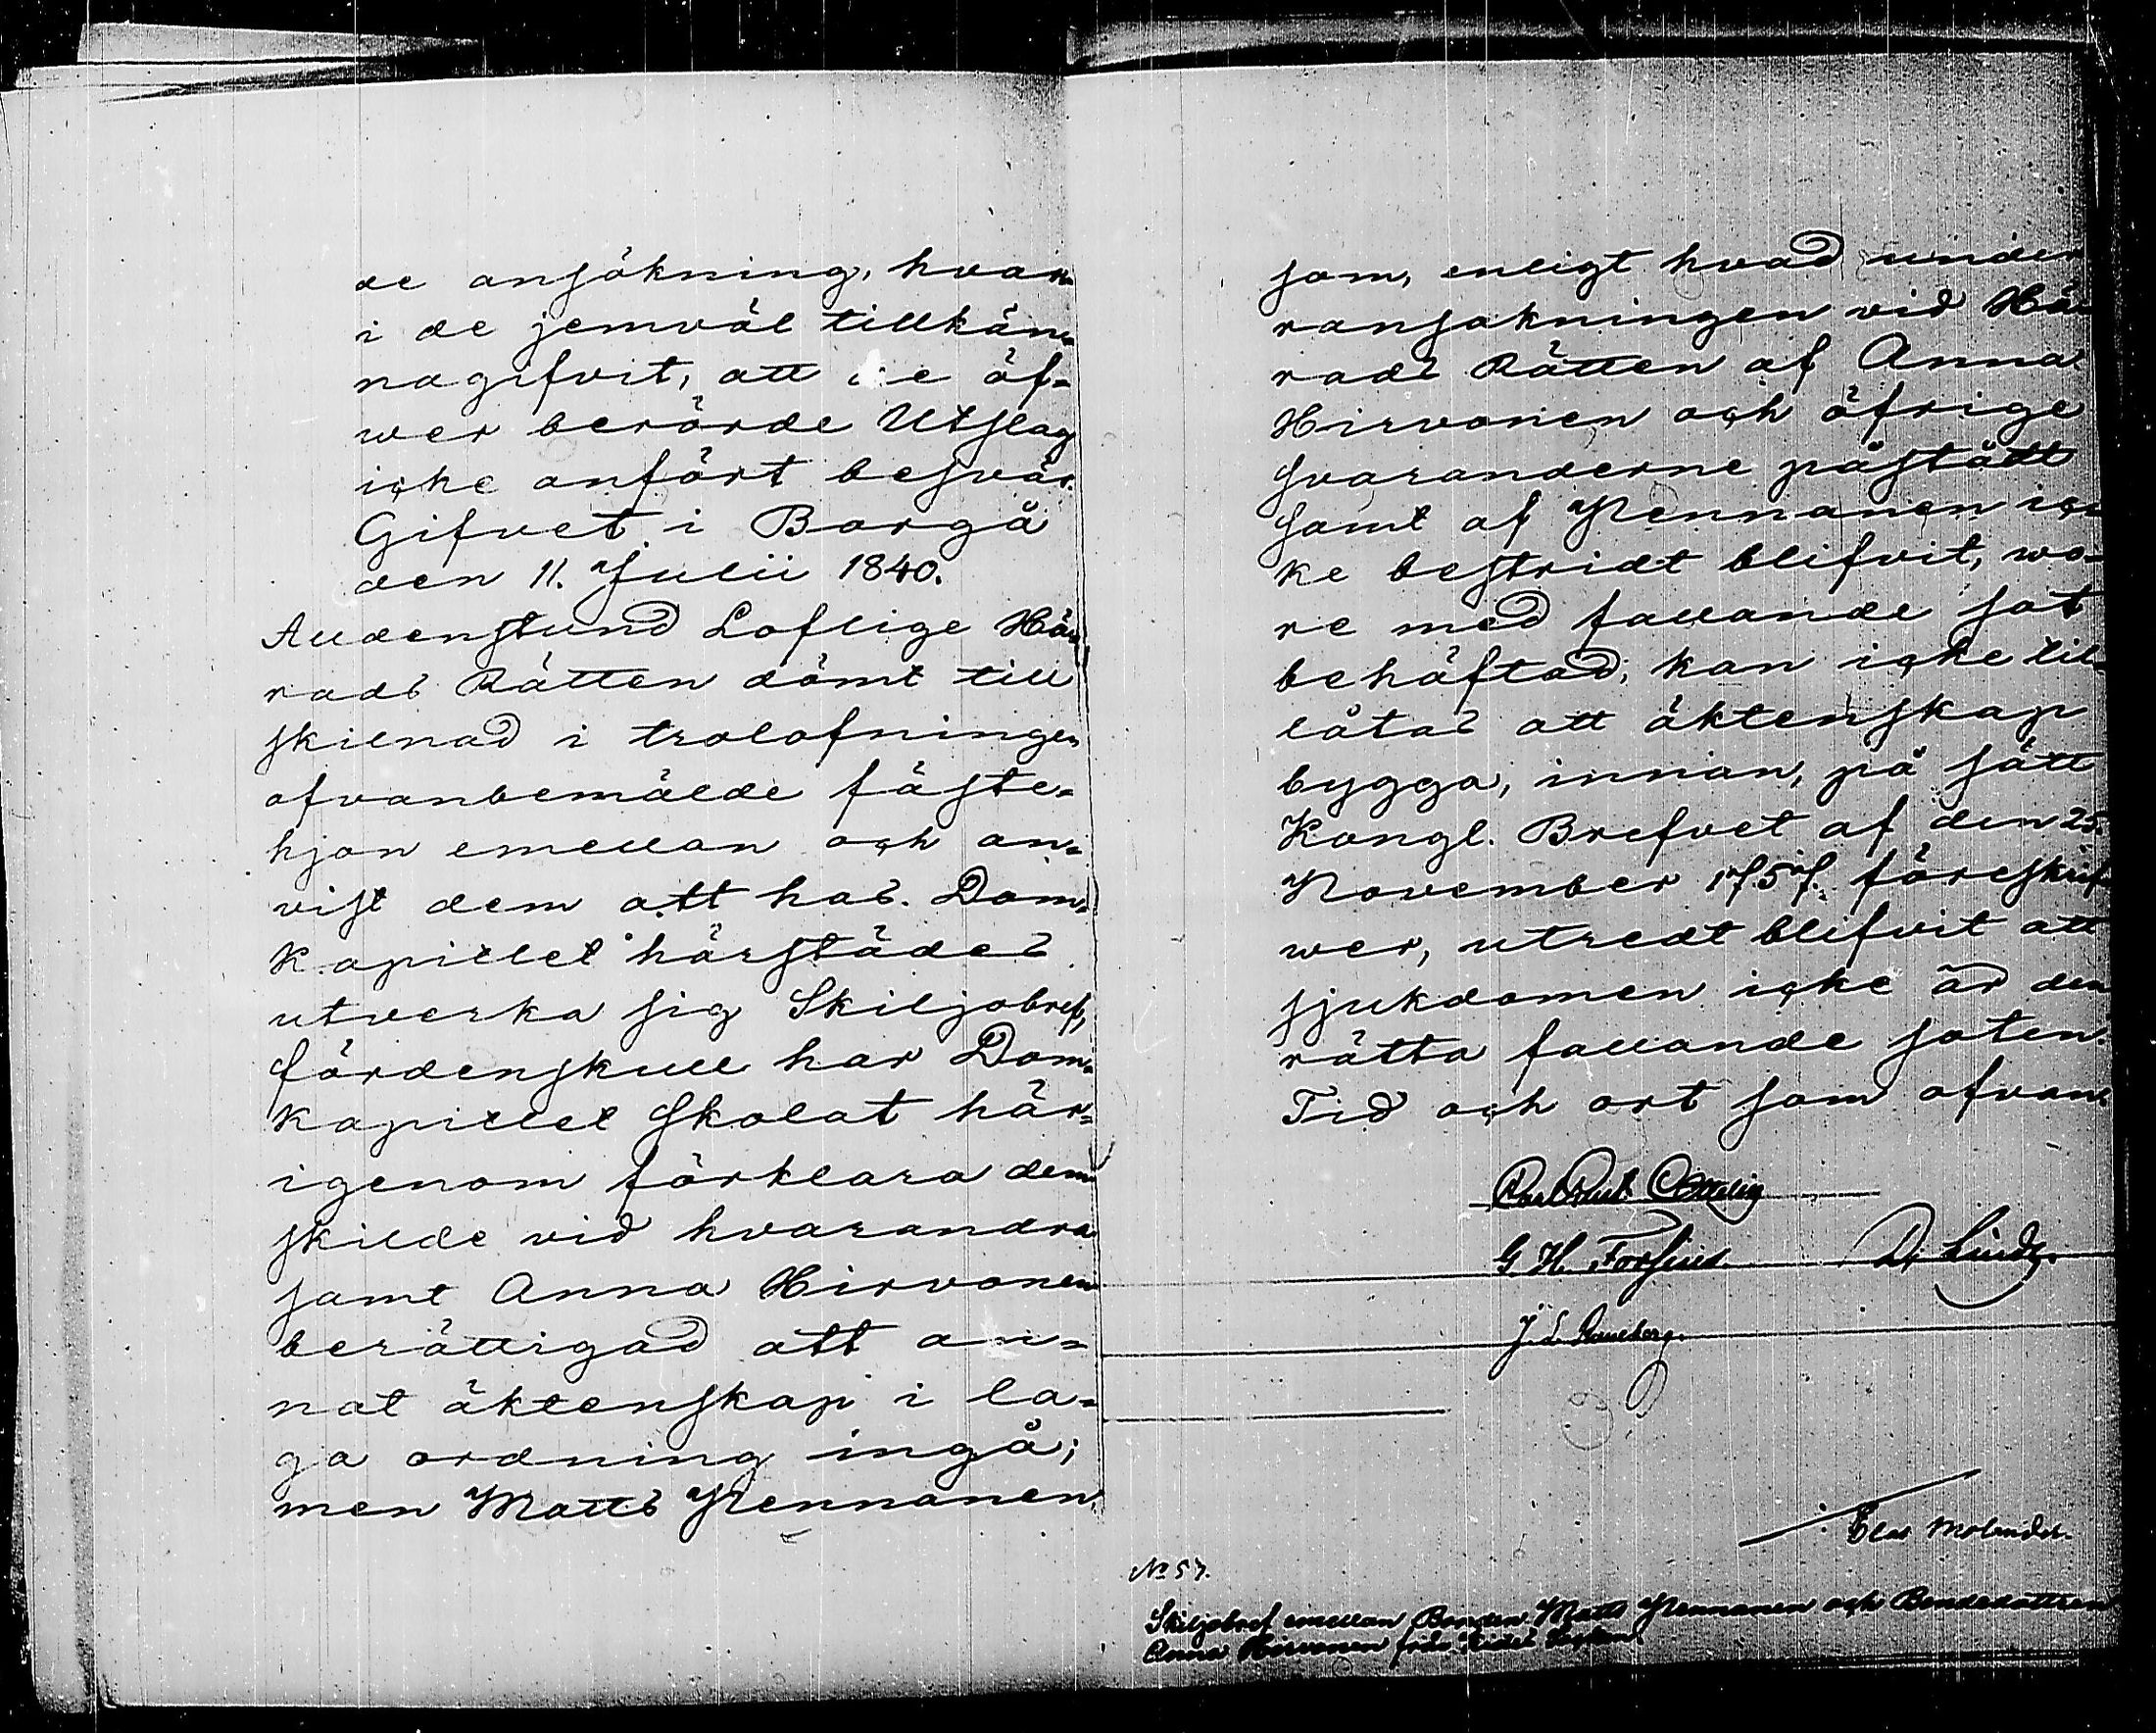 de ansökning, hvar-
i de jemväl tillkän-
nagifvit, att de öf-
wer berörde Utslag
icke anfört besvär.
Gifvet i Borgå
den 11. Julii 1840.
Alldenstund Loflige Hä-
rads Rätten dömt till
skilnad i trolofningen
ofvanbemälde fäste-
hjon emellan och an-
vist dem att hos Dom-
Kapitlet härstädes
utverka sig Skiljobref,
fördenskull har Dom-
kapitlet skolat här-
igenom förklara dem
skilde vid hvarandra
samt Anna Hirvonen
berättigad att an-
nat äktenskap i la-
ga ordning ingå;
men Matts Pennanen,
som, enligt hvad under
ransakningen vid Hä-
rads Rätten af Anna
Hirvonen och öfrige
Svaranderne påstådt
samt af Pennanen ic-
ke bestridt blifvit, wo-
re med fallande sot
behäftad, kan icke til-
låtas att äktenskap
bygga, innan, på sätt
Kongl. Brefvet af den 25.
November 1757. föreskrif-
wer, utredt blifvit att
sjukdomen icke är den
rätta fallande soten.
Tid och ort som ofvan.
G. H. Forsius
J. L. Runeberg.
Elas Molander.
No 57.
Skiljobref emellan Bonden Matts Pennanen och Bondedottren
Anna Hirvonen från